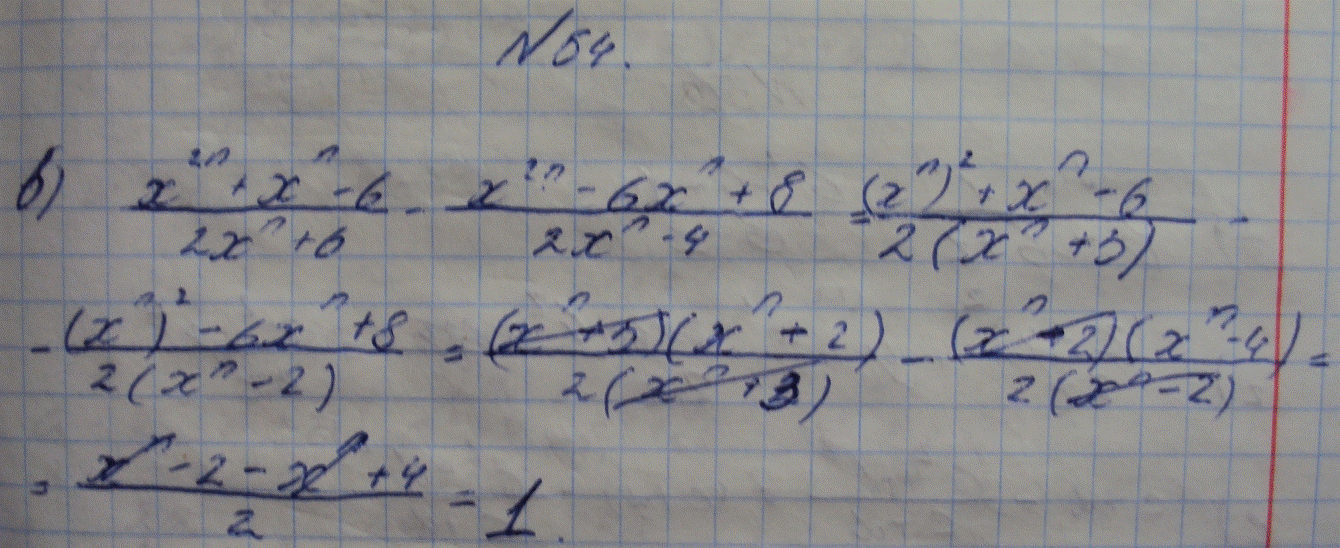 №54.
в) (x²ⁿ + xⁿ - 6)/(2xⁿ + 6) - (x²ⁿ - 6xⁿ + 8)/(2xⁿ - 4) = ((xⁿ)² + xⁿ - 6)/(2(xⁿ + 3)) -
- ((xⁿ)² - 6xⁿ + 8)/(2(xⁿ - 2)) = ((xⁿ + 3)(xⁿ + 2))/(2(xⁿ + 3)) - ((xⁿ - 2)(xⁿ - 4))/(2(xⁿ - 2)) =
= (xⁿ - 2 - xⁿ + 4)/2 = 1.